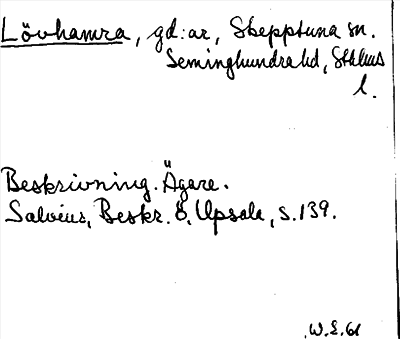 Lövhamra, gd:ar, Skepptuna sn.
Seminghundra hd, Sthlms
l.
Beskrivning. Ägare.
Salvius, Beskr. ö. Upsala, s. 139.
W.E. 61